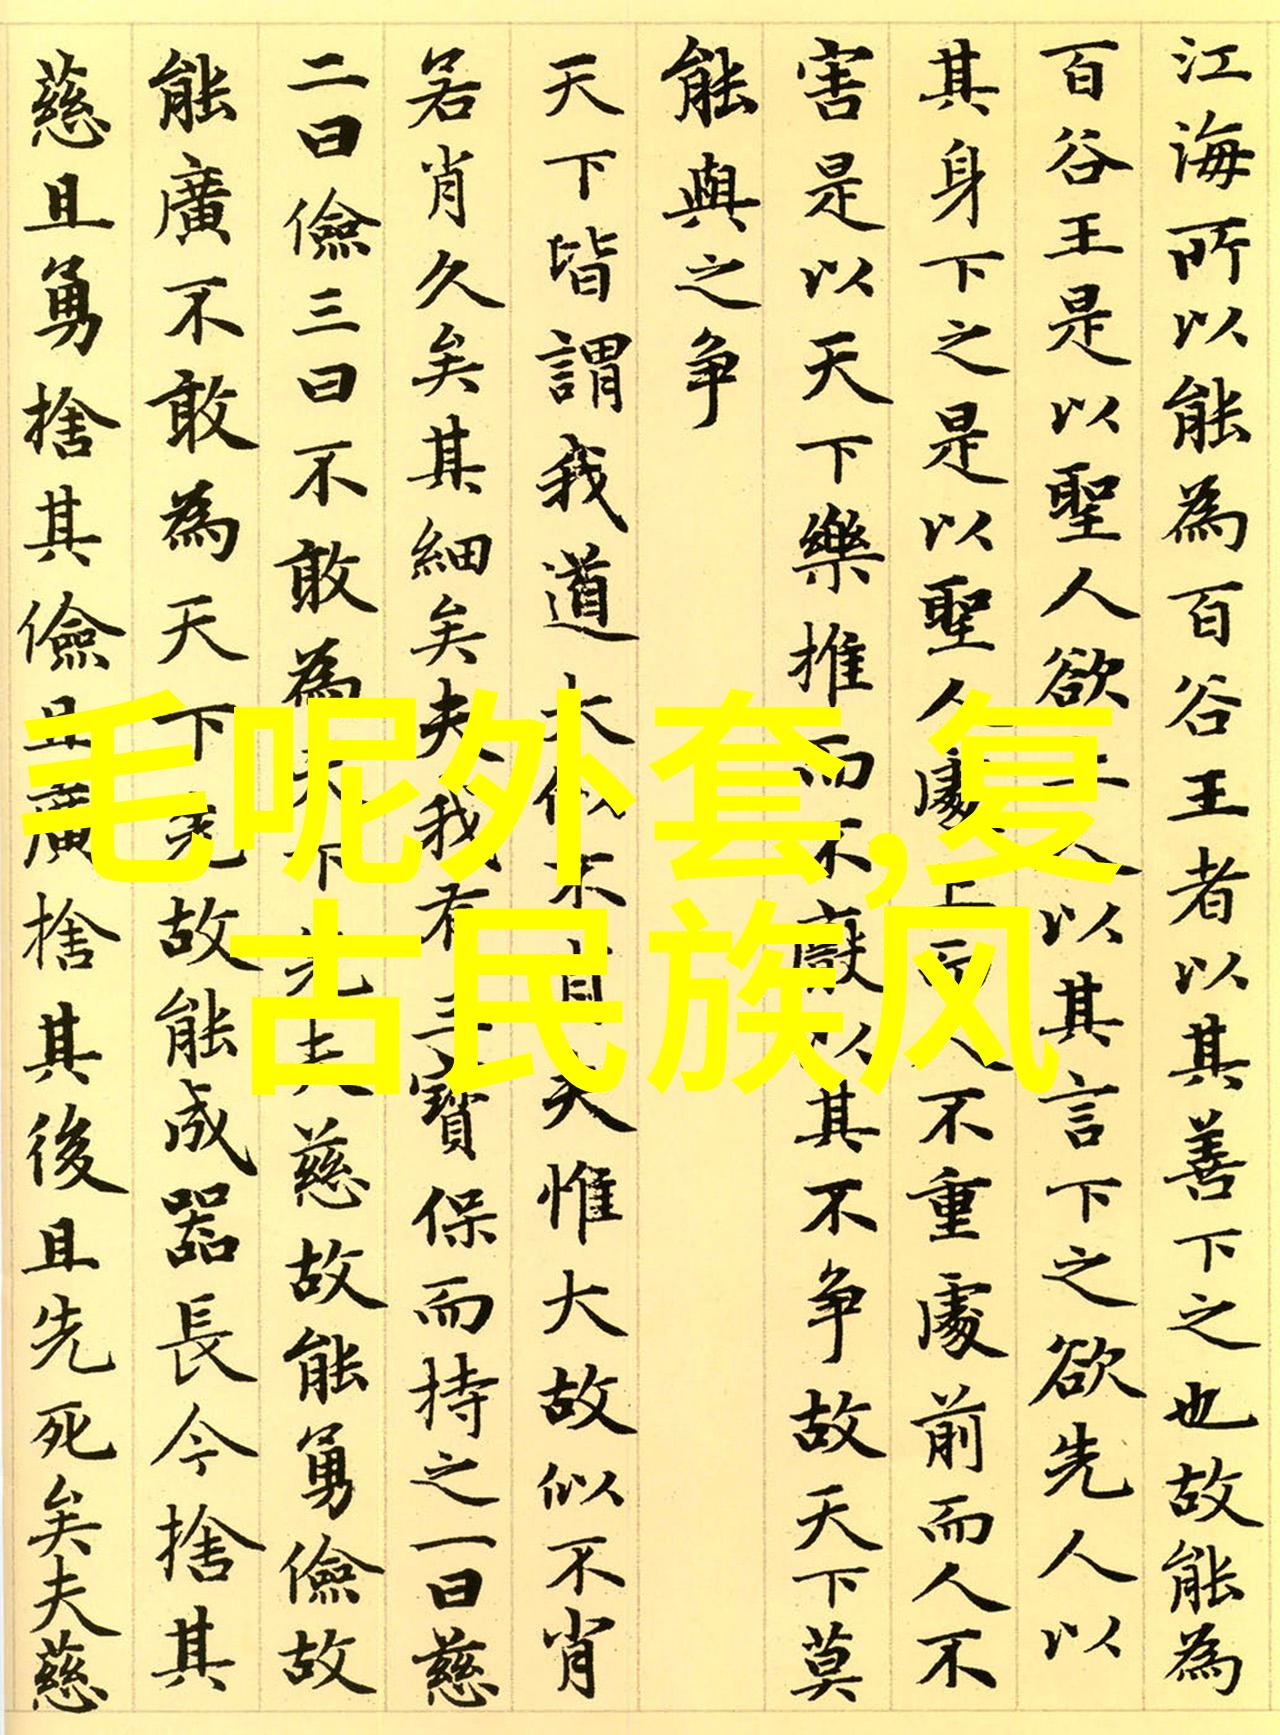 江海所以能為百谷王者以其善下之也故能為
百谷王是以聖人欲上人以其言下之欲先人以
其身下之是以聖人處上而人不重處前而人不
害是以天下樂推而不厭以其不争故天下莫
能與之争
天下皆謂我道大似不肖夫惟大故似不肖
若肖久矣其細矣夫我有三寶保而持之一曰慈
二曰儉三曰不敢為天下先夫慈故能勇儉故
能廣不敢為天下先故能成器長今捨其
慈且勇捨其儉且廣捨其後且先死矣夫慈
毛呢外套,复
古民族风